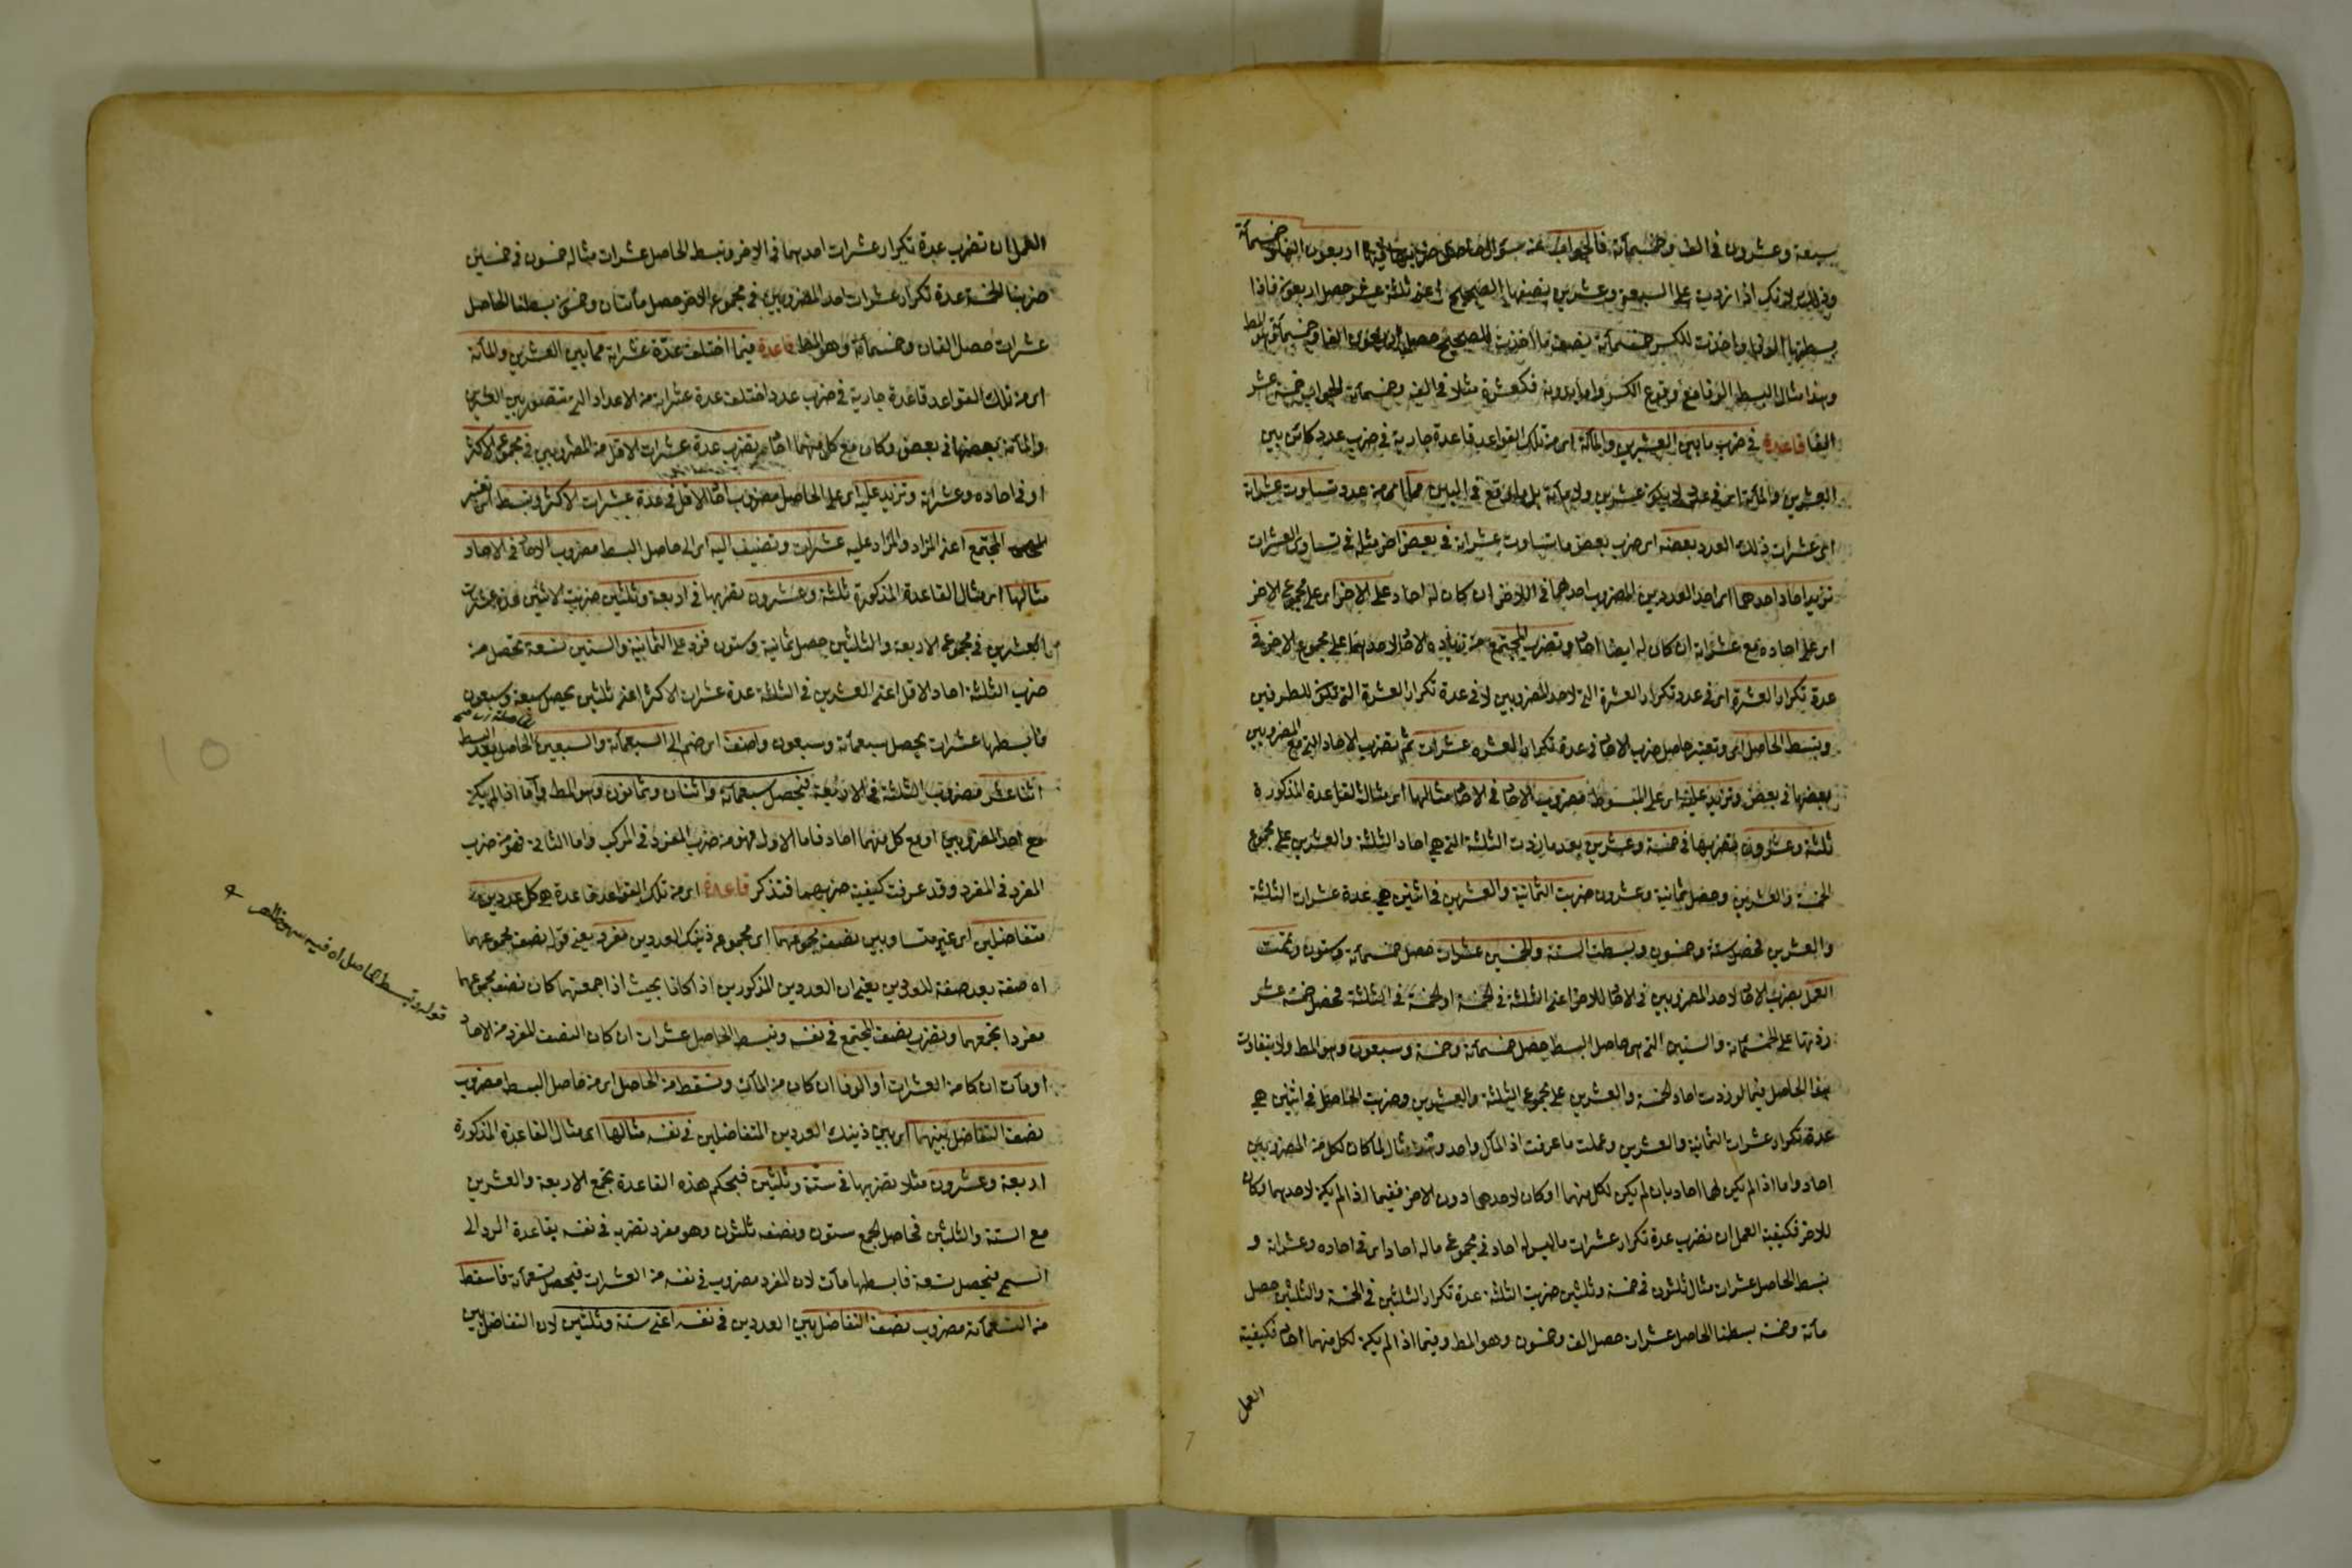 سبعة وعشرون في الف وخمسمائة فالجواب اربعون الفا وخمسمائة
وذلك لانك اذا زدت على السبعة وعشرين نصفها الصحيح اعنى ثلثة عشر حصل اربعون فاذا
بسطتها الوفا واخذت للكسر خمسمائة نصف ما اخذت للصحيح حصل اربعون الفا وخمسمائة وهو المط
وهذا مثال البسط الوفا مع وقوع الكسر واما بدونه فكعشرة مثلا في الف وخمسمائة الجواب خمسة عشر
الفا قاعدة في ضرب ما بين العشرين والمائة اى من تلك القواعد قاعدة جارية في ضرب عدد كائن بين
العشرين والمائة اى في عدد لا يكون عشرين ولا مائة بل ما وقع في البين مما اى من عدد تساوت عشراته
اى عشرات ذلك العدد بعضه اى ضرب بعض ما تساوت عشراته في بعض اخر مثله في تساوى العشرات
تزيد احاد احدهما اى احد العددين المضروب احدهما في الاخر ان كان له احاد على الاخر اى على مجموع الاخر
اى على احاده مع عشراته ان كان له ايضا احاد وتضرب المجتمع من زيادة الاحاد لاحدهما على مجموع الاخر في
عدة تكرار العشرة اى في عدد تكرار العشرة التى لاحد المضروبين لا في عدة تكرار العشرة التى تكون للطرفين
وتبسط الحاصل اى وتعتبر حاصل ضرب الاحاد في عدة تكرار العشرة عشرات ثم تضرب الاحاد التى مع المضروبين
بعضها في بعض وتزيد عليه اى على المبسوط مضروب الاحاد في الاحاد مثالها اى مثال القاعدة المذكورة
ثلثة وعشرون تضربها في خمسة وعشرين بعد ما زدت الثلثة التى هي احاد الثلثة والعشرين على مجموع
الخمسة والعشرين وحصل ثمانية وعشرون ضربت الثمانية والعشرين في اثنين هي عدة عشرات الثلثة
والعشرين فحصل ستة وخمسون وبسطت الستة والخمسين عشرات حصل خمسمائة وستون وتممت
العمل بضرب الاحاد لاحد المضروبين في الاحاد للاخر اعنى الثلثة في الخمسة او الخمسة في الثلثة فحصل خمسة عشر
زدتها على الخمسمائة والستين التى هى حاصل البسط حصل خمسمائة وخمسة وسبعون وهو المط ولا يتفاوت
هذا الحاصل فيما لو زدت احاد الخمسة والعشرين على مجموع الثلثة والعشرين وضربت الحاصل في اثنين هي
عدة تكرار عشرات الثمانية والعشرين وعملت ما عرفت اذ المآل واحد وهذا مثال لما كان لكل من المضروبين
احاد واما اذا لم يكن لهما احاد بان لم يكن لكل منهما او كان لاحدهما دون الاخر ففيما اذا لم يكن لاحدهما وكان
للاخر فكيفية العمل ان تضرب عدة تكرار عشرات ما ليس له احاد في مجموع ما له احاد اى في احاده وعشراته و
تبسط الحاصل عشرات مثال ثلثون في خمسة وثلثين ضربت الثلثة عدة تكرار الثلثين في الخمسة والثلثين حصل
مائة وخمسة بسطنا الحاصل عشرات حصل الف وخمسون وهو المط وفيما اذا لم يكن لكل منهما احاد فكيفية
العمل
العمل ان تضرب عدة تكرار عشرات احديهما في الاخر وتبسط الحاصل عشرات مثاله خمسون في خمسين
ضربنا الخمسة عدة تكرار عشرات احد المضروبين في مجموع الاخر حصل مأتان وخمسون بسطنا الحاصل
عشرات حصل الفان وخمسمائة وهو المط قاعدة فيما اختلف عدة عشراته مما بين العشرين والمائة
اى من تلك القواعد قاعدة جارية في ضرب عدد اختلف عدة عشراته من الاعداد التى تتصور بين العشرين
والمائة بعضها في بعض وكان مع كل منهما احاد تضرب عدة عشرات الاقل من المضروبين في مجموع الاكثر
او في احاده وعشراته وتزيد عليه اى على الحاصل مضروب احاد الاقل في عدة عشرات الاكثر وتبسط اى تعتبر
المجتمع اعنى المزاد والمزاد عليه عشرات وتضيف اليه اى الى حاصل البسط مضروب الاحاد في الاحاد
مثالها اى مثال القاعدة المذكورة ثلثة وعشرون تضربها في اربعة وثلثين ضربت الاثنين عدة عشرات
العشرين في مجموع الاربعة والثلثين حصل ثمانية وستون فزد على الثمانية والستين تسعة تحصل من
ضرب الثلثة احاد الاقل اعنى العشرين في الثلثة عدة عشرات الاكثر اعنى ثلثين يحصل سبعة وسبعون
فابسطها عشرات يحصل سبعمائة وسبعون واضف اى ضم الى السبعمائة والسبعين الحاصل بعد البسط
اثنا عشر مضروب الثلثة في الاربعة فيحصل سبعمائة واثنان وثمانون وهو المط واما اذا لم يكن
مع احد المضروبين او مع كل منهما احاد فاما الاول فهو من ضرب المفرد في المركب واما الثاني فهو من ضرب
المفرد في المفرد وقد عرفت كيفية ضربهما فتذكر قاعدة اى من تلك القواعد قاعدة هي كل عددين
متفاضلين اى غير متساويين نصف مجموعهما اى مجموع ذينك العددين مفرد يعنى قوله نصف مجموعهما
اه صفة بعد صفة للعددين يعنى ان العددين المذكورين اذا كانا بحيث اذا جمعتهما كان نصف مجموعهما
مفردا تجمعهما وتضرب نصف المجتمع في نفسه وتبسط الحاصل عشرات ان كان النصف المفرد من الاحاد
او مآت ان كان من العشرات او الوفا ان كان من المآت وتسقط من الحاصل اى من حاصل البسط مضروب
نصف التفاضل بينهما اى بين ذينك العددين المتفاضلين في نفسه مثالها اى مثال القاعدة المذكورة
اربعة وعشرون مثلا تضربها في ستة وثلثين فبحكم هذه القاعدة تجمع الاربعة والعشرين
مع الستة والثلثين فحاصل الجمع ستون ونصفه ثلثون وهو مفرد تضرب في نفسه بقاعدة الرد الى
السمى فيحصل تسعة فابسطها مآت لان المفرد مضروب في نفسه من العشرات فيحصل تسعمائة فاسقط
من التسعمائة مضروب نصف التفاضل بين العددين في نفسه اعنى ستة وثلثين لان التفاضل بين
قوله وتبسط الحاصل اه فيه سهو ظاهر